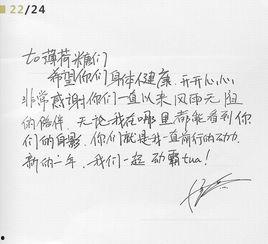 22/24
to 薄荷糖们
希望你们身体健康，开开心心
非常感谢你们一直以来风雨无阻
的陪伴，无论我在哪里都能看到你
们的身影，你们就是我一直前行的动力
新的一年，我们一起 劲霸tua！